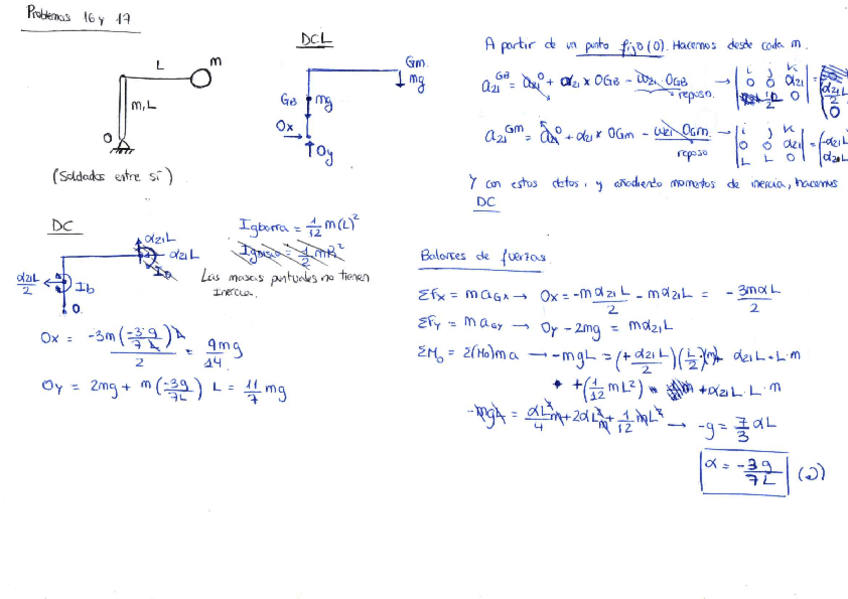 Problemas 16 y 17
L
m
m, L
O
(Soldados entre sí)
DCL
Gm
mg
GB
mg
Ox
Oy
A partir de un punto fijo (0). Hacemos desde cada m.
a21^GB = a21^O + α21 x OGB - ω21 OGB → | i j k | 0 0 α21 | 0
reposo.
a21^Gm = a21^O + α21 x OGm - ω21 OGm → | i j k | 0 0 α21 | L L 0 | = (-α21L α21L
reposo
Y con estos datos, y añadiendo momentos de inercia, hacemos
DC
DC
α21L
α21L
α21L/2
Ib
O
Igbarra = 1/12 m(L)²
Igdisco = 1/2 mR²
Las masas puntuales no tienen
inercia.
Ox = -3m(-3g/7L)L / 2 = 9mg/14
Oy = 2mg + m(-3g/7L) L = 11/7 mg
Balances de fuerzas.
ΣFx = m aGx → Ox = -mα21L/2 - mα21L = - 3mαL/2
ΣFy = m aGy → Oy - 2mg = mα21L
ΣMo = Σ(Mo)ma → -mgL = (+α21L/2)(L/2)(m)+ α21L·L·m
+(1/12 mL²) + α21L·L·m
-mgL = αL²/4 m + 2αL²m + 1/12 mL² → -g = 7/3 αL
α = -3g/7L